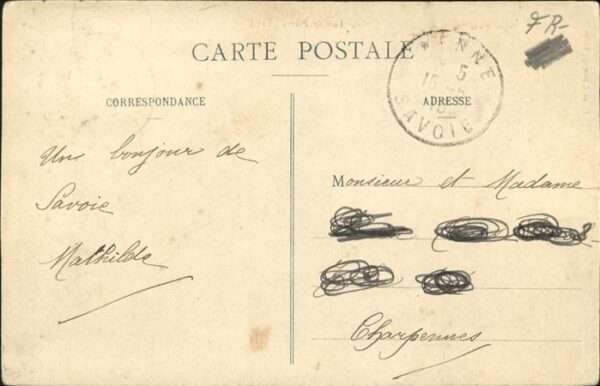 FR-
CARTE POSTALE
YENNE
5
SAVOIE
CORRESPONDANCE
ADRESSE
Un bonjour de
Savoie
Mathilde
Monsieur et Madame
Charpennes